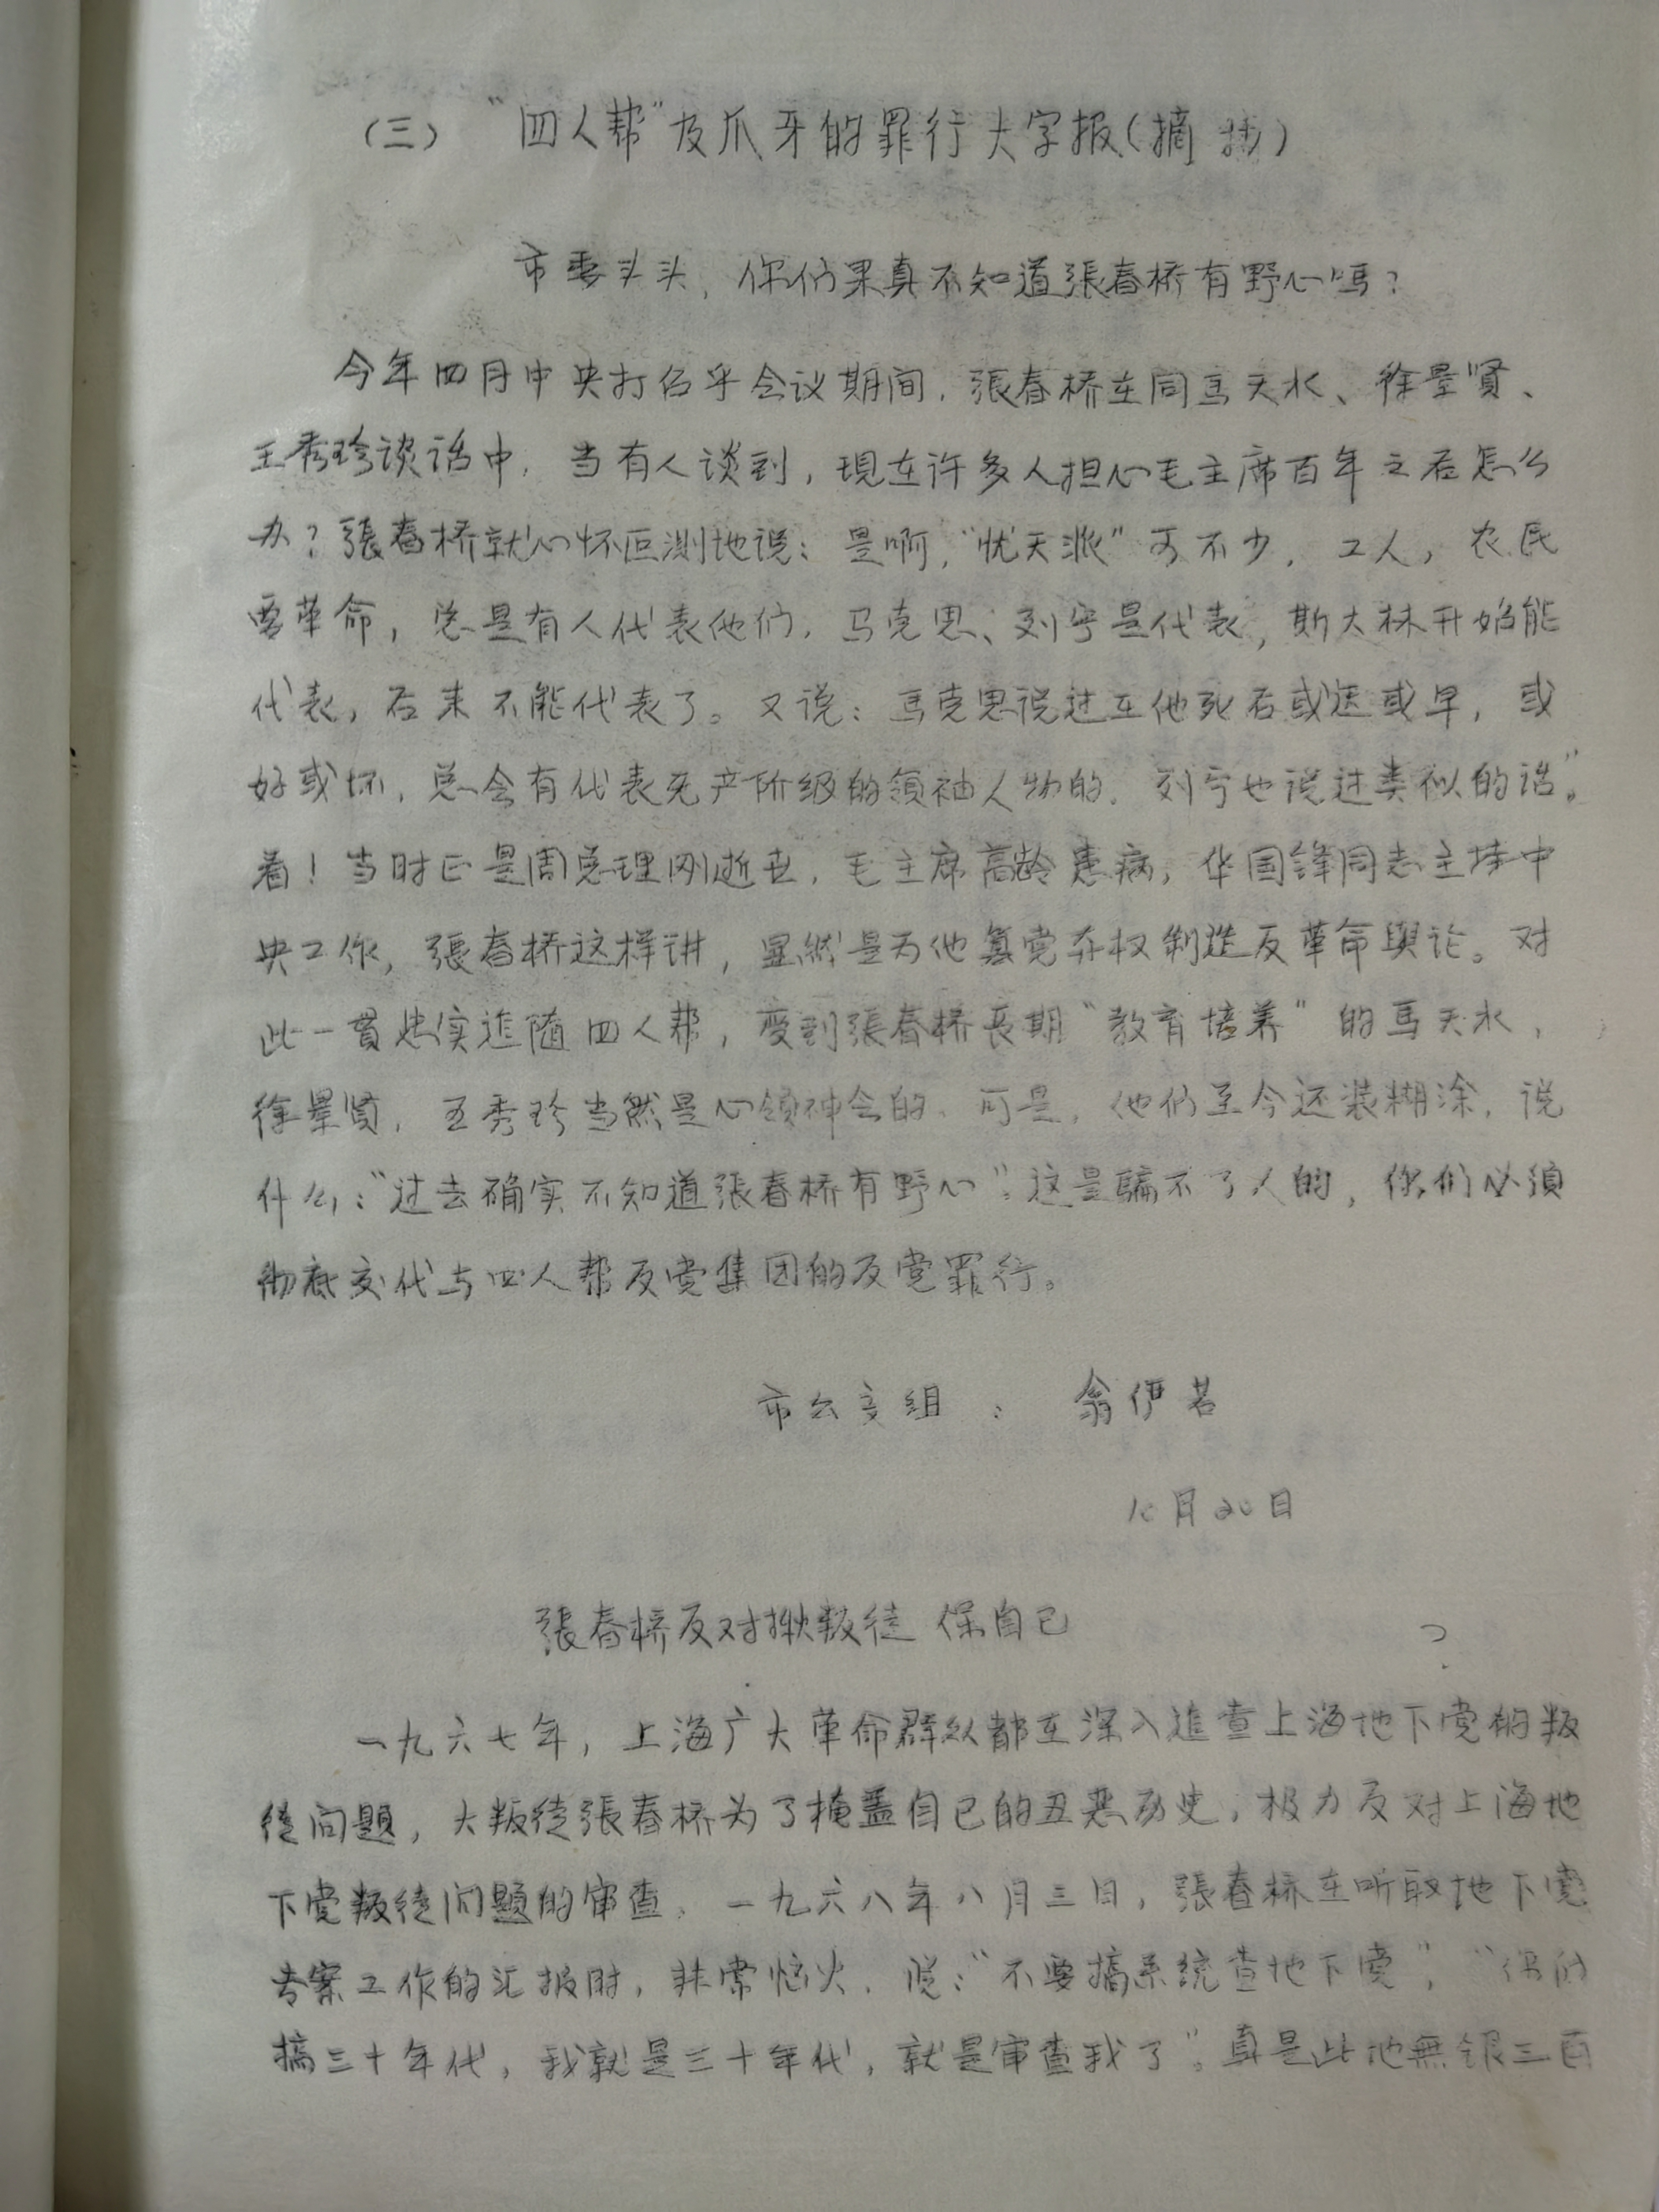 （三） “四人帮”及爪牙的罪行大字报（摘抄）
市委头头，你们果真不知道張春桥有野心吗？
今年四月中央打招乎会议期间，張春桥在同馬天水、徐景贤、
王秀珍谈话中，当有人谈到，現在许多人担心毛主席百年之后怎么
办？張春桥就心怀叵测地说：是啊，“忧天派”可不少，工人，农民
要革命，总是有人代表他们，马克思、列宁是代表，斯大林开始能
代表，后来不能代表了。又说：馬克思说过在他死后或迟或早，或
好或坏，总会有代表无产阶级的领袖人物的，列宁也说过类似的话”。
看！当时正是周总理刚逝世，毛主席高龄患病，华国鋒同志主持中
央工作，張春桥这样讲，显然是为他篡党夺权制造反革命舆论。对
此一贯忠实追随四人帮，受到張春桥長期“教育培养”的馬天水，
徐景贤，王秀珍当然是心领神会的，可是，他们至今还装糊涂，说
什么：“过去确实不知道張春桥有野心”。这是騙不了人的，你们必須
彻底交代与四人帮反党集团的反党罪行。
市公交组 ： 翁伊若
10月20日
張春桥反对揪叛徒 保自己
一九六七年，上海广大革命群众都在深入追查上海地下党的叛
徒问題，大叛徒張春桥为了掩盖自己的丑恶历史，极力反对上海地
下党叛徒问題的审查。一九六八年八月三日，張春桥在听取地下党
专案工作的汇报时，非常恼火，说：“不要搞系统查地下党”，“你们
搞三十年代，我就是三十年代，就是审查我了”。真是此地無银三百